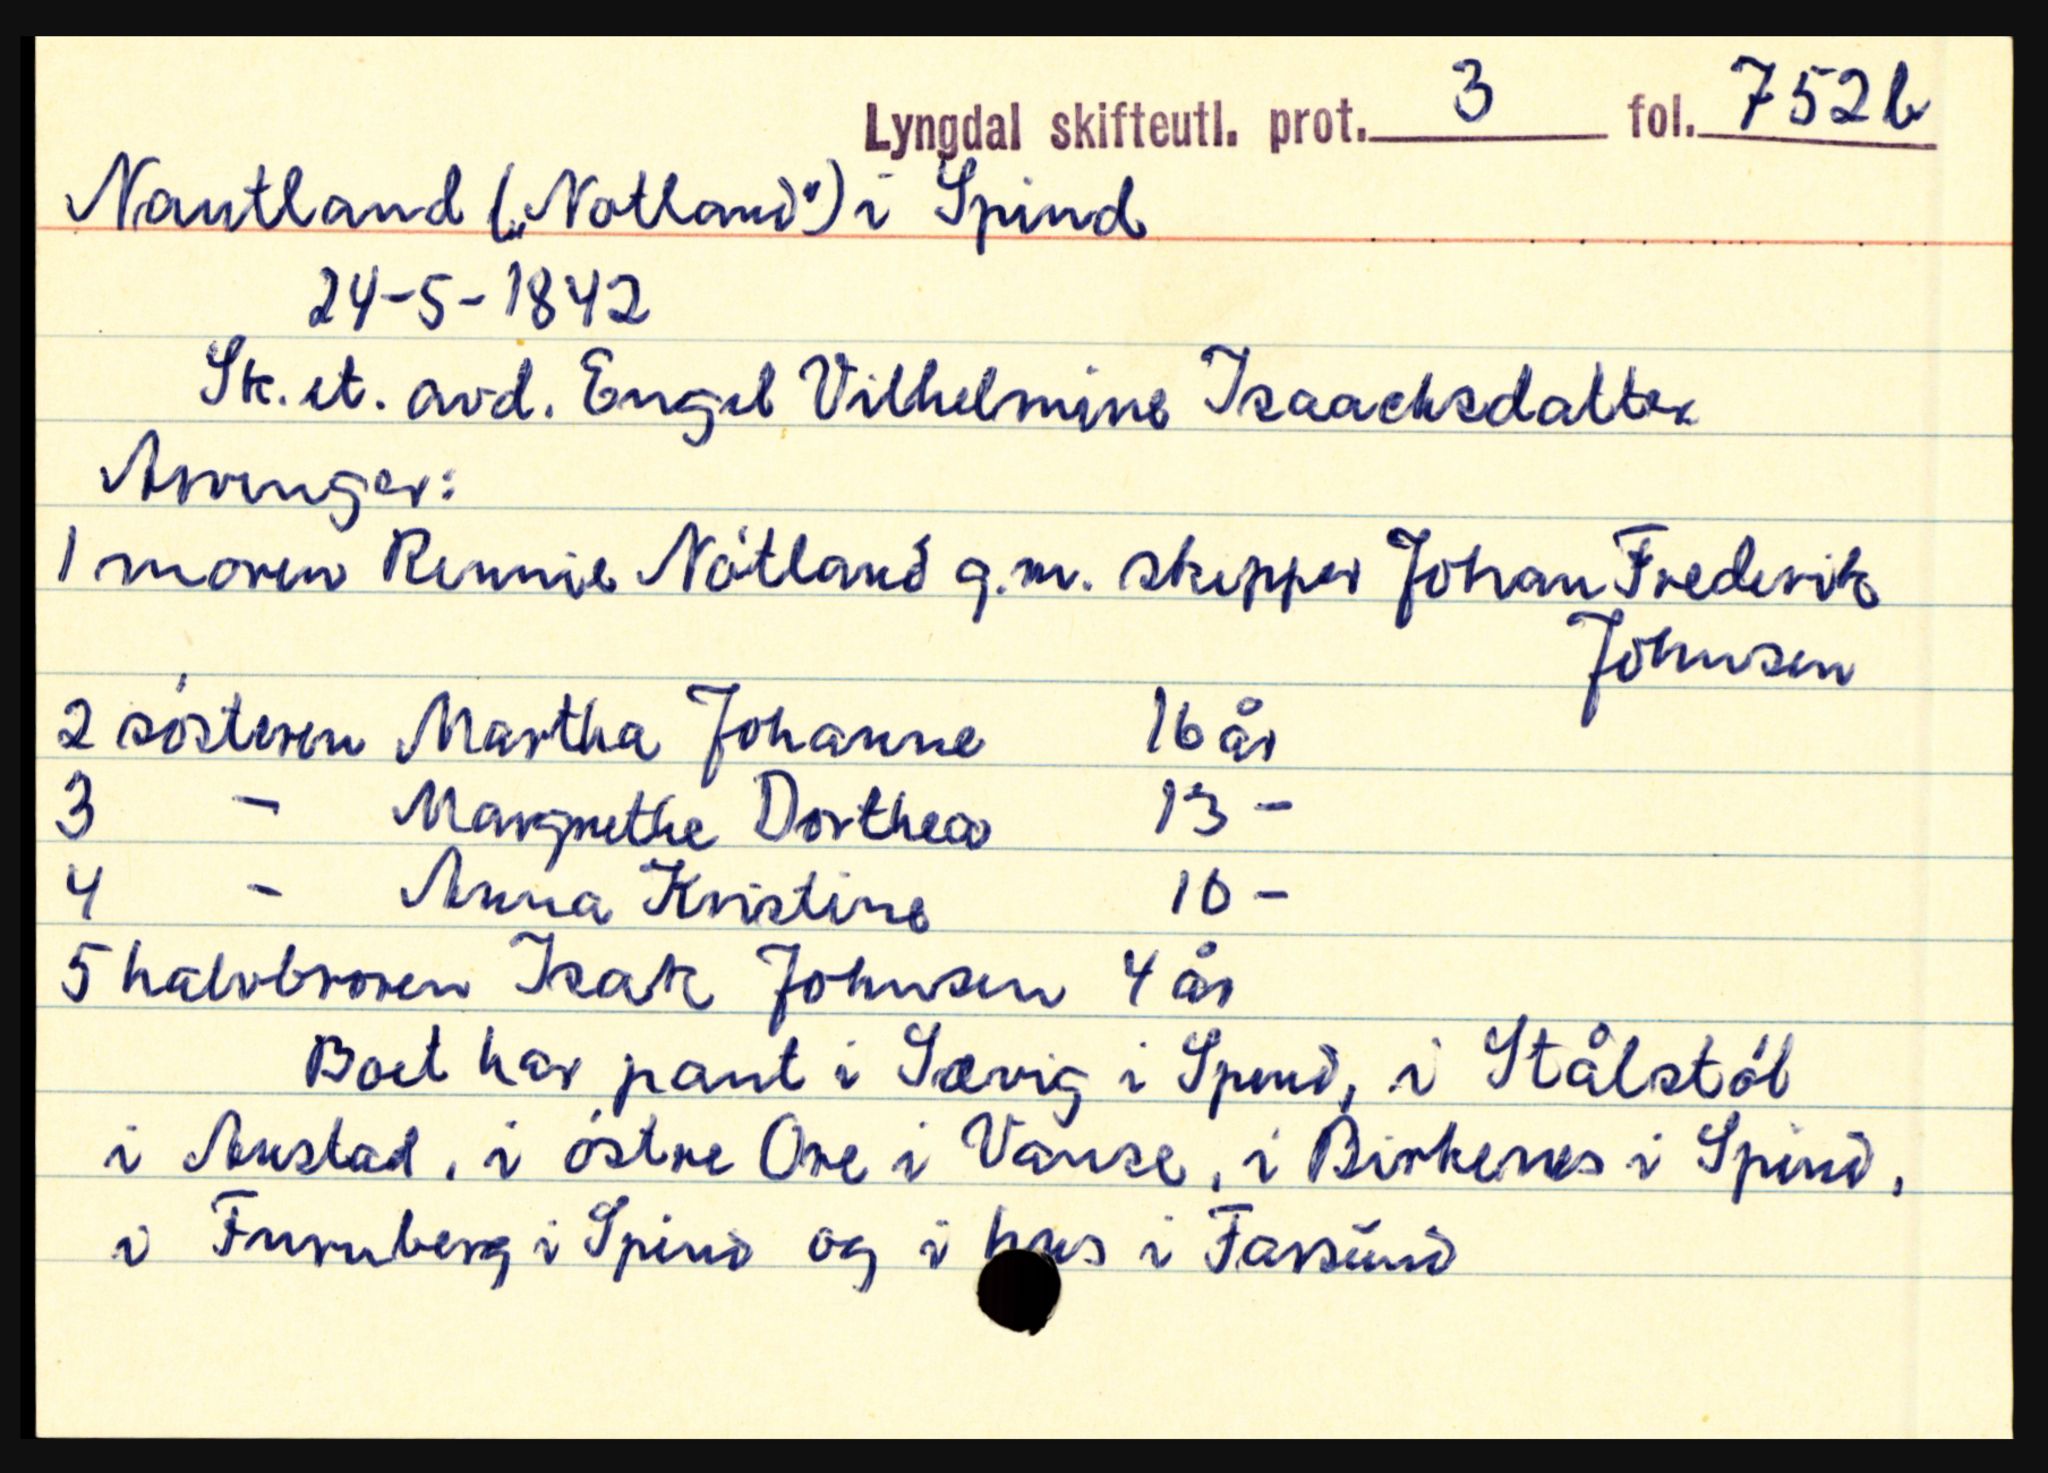 Lyngdal skifteutl. prot. 3 fol. 752b
Nautland („Notland") i Spind
24-5-1842
Sk. et. avd. Engel Vilhelmine Isaachsdatter
Arvinger:
1 moren Rennie Nótland g.m. skipper Johan Frederik
Johnsen
2 sósteren Martha Johanne 16 år
3 - Margrethe Dorthea 13 -
4 - Anna Kristine 10 -
5 halvbroren Isak Johnsen 4 år
Boet har pant i Sævig i Spind, i Stålstól
i Austad, i óstre Ore i Vanse, i Birkenes i Spind,
i Furuberg i Spind og i hus i Farsund